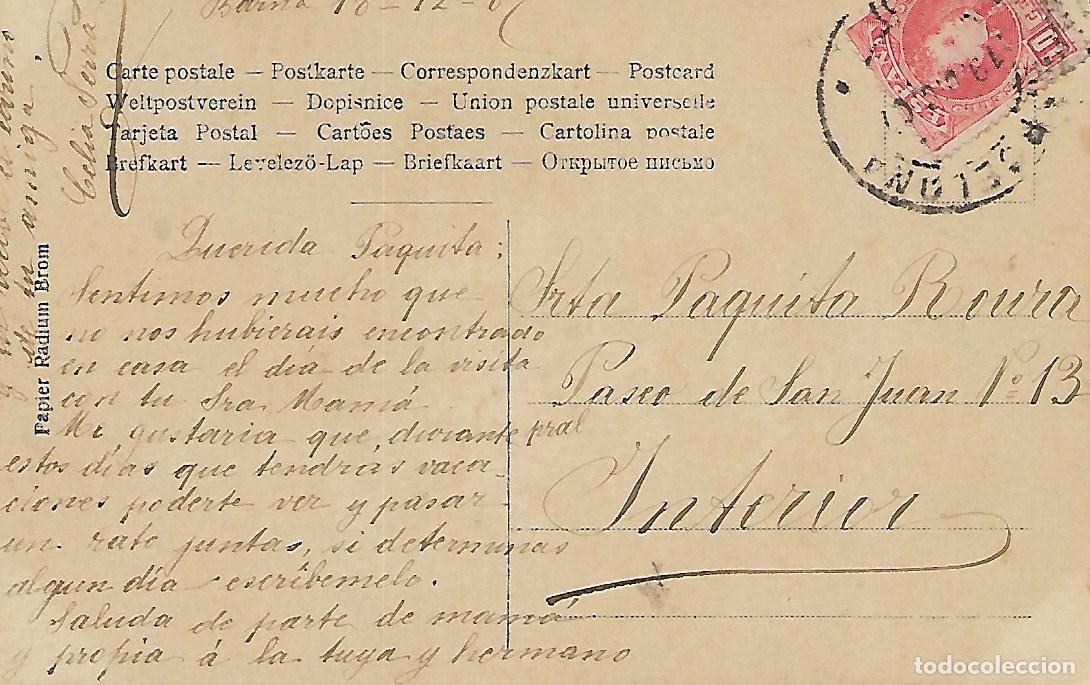 Barna 18-12-0
Carte postale — Postkarte — Correspondenzkart — Postcard
Weltpostverein — Dopisnice — Union postale universelle
Tarjeta Postal — Cartões Postaes — Cartolina postale
Brefkart — Levelező-Lap — Briefkaart — Открытое письмо
Papier Radium Brom
Querida Paquita:
Sentimos mucho que
no nos hubierais encontrado
en casa el día de la visita
con tu Sra Mamá
Me gustaria que durante
estos días que tendrás vaca-
ciones poderte ver y pasar
un rato juntas, si determinas
algun día escríbemelo.
Saluda de parte de mamá
y propia á la tuya y hermano
de tu amiga
Celia Serra
Srta Paquita Roura
Paseo de San Juan Nº 13
pral
Interior
10
todocoleccion